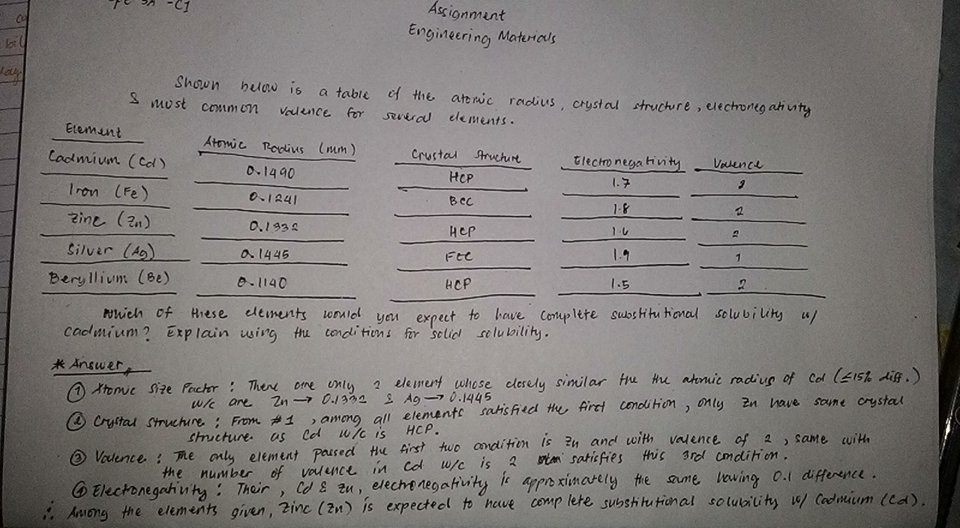 -C1
Assignment
Engineering Materials
Shown below is a table of the atomic radius, crystal structure, electronegativity
& most common valence for several elements.
Element Atomic Radius (nm) Crystal Structure Electronegativity Valence
Cadmium (Cd) 0.1490 HCP 1.7 2
Iron (Fe) 0.1241 BCC 1.8 2
Zinc (Zn) 0.1332 HCP 1.6 2
Silver (Ag) 0.1445 FCC 1.9 1
Beryllium (Be) 0.1140 HCP 1.5 2
Which of these elements would you expect to have complete substitutional solubility w/
cadmium? Explain using the conditions for solid solubility.
* Answer
① Atomic Size Factor : There are only 2 element whose closely similar the the atomic radius of Cd (≤15% diff.)
w/c are Zn → 0.1332 & Ag → 0.1445
② Crystal structure : From #1, among all elements satisfied the first condition, only Zn have same crystal
structure as Cd w/c is HCP.
③ Valence : The only element passed the first two condition is Zn and with valence of 2, same with
the number of valence in Cd w/c is 2 satisfies this 3rd condition.
④ Electronegativity : Their, Cd & Zn, electronegativity is approximately the same having 0.1 difference.
∴ Among the elements given, Zinc (Zn) is expected to have complete substitutional solubility w/ Cadmium (Cd).